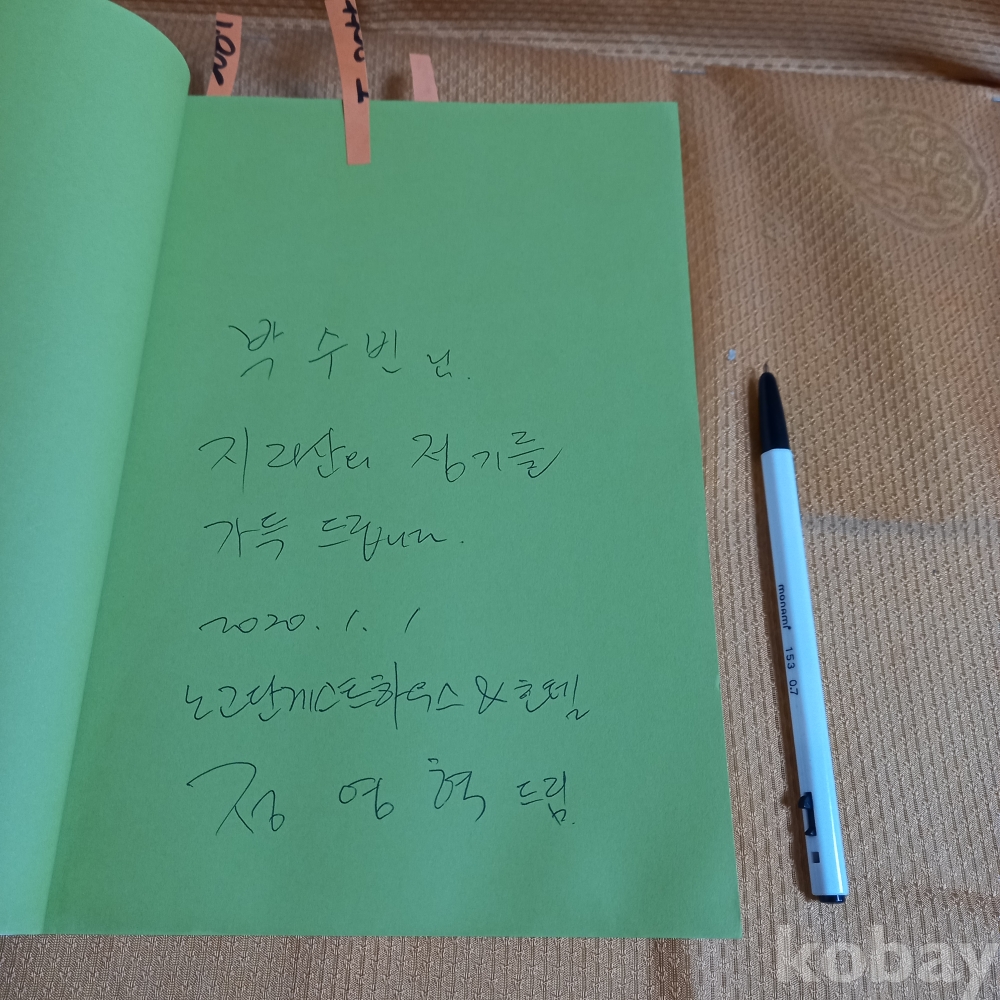 박수빈 님.
지리산의 정기를
가득 드립니다.
2020. 1. 1
노고단게스트하우스 & 호텔
정영혁 드림.
monami 153 0.7
kobay